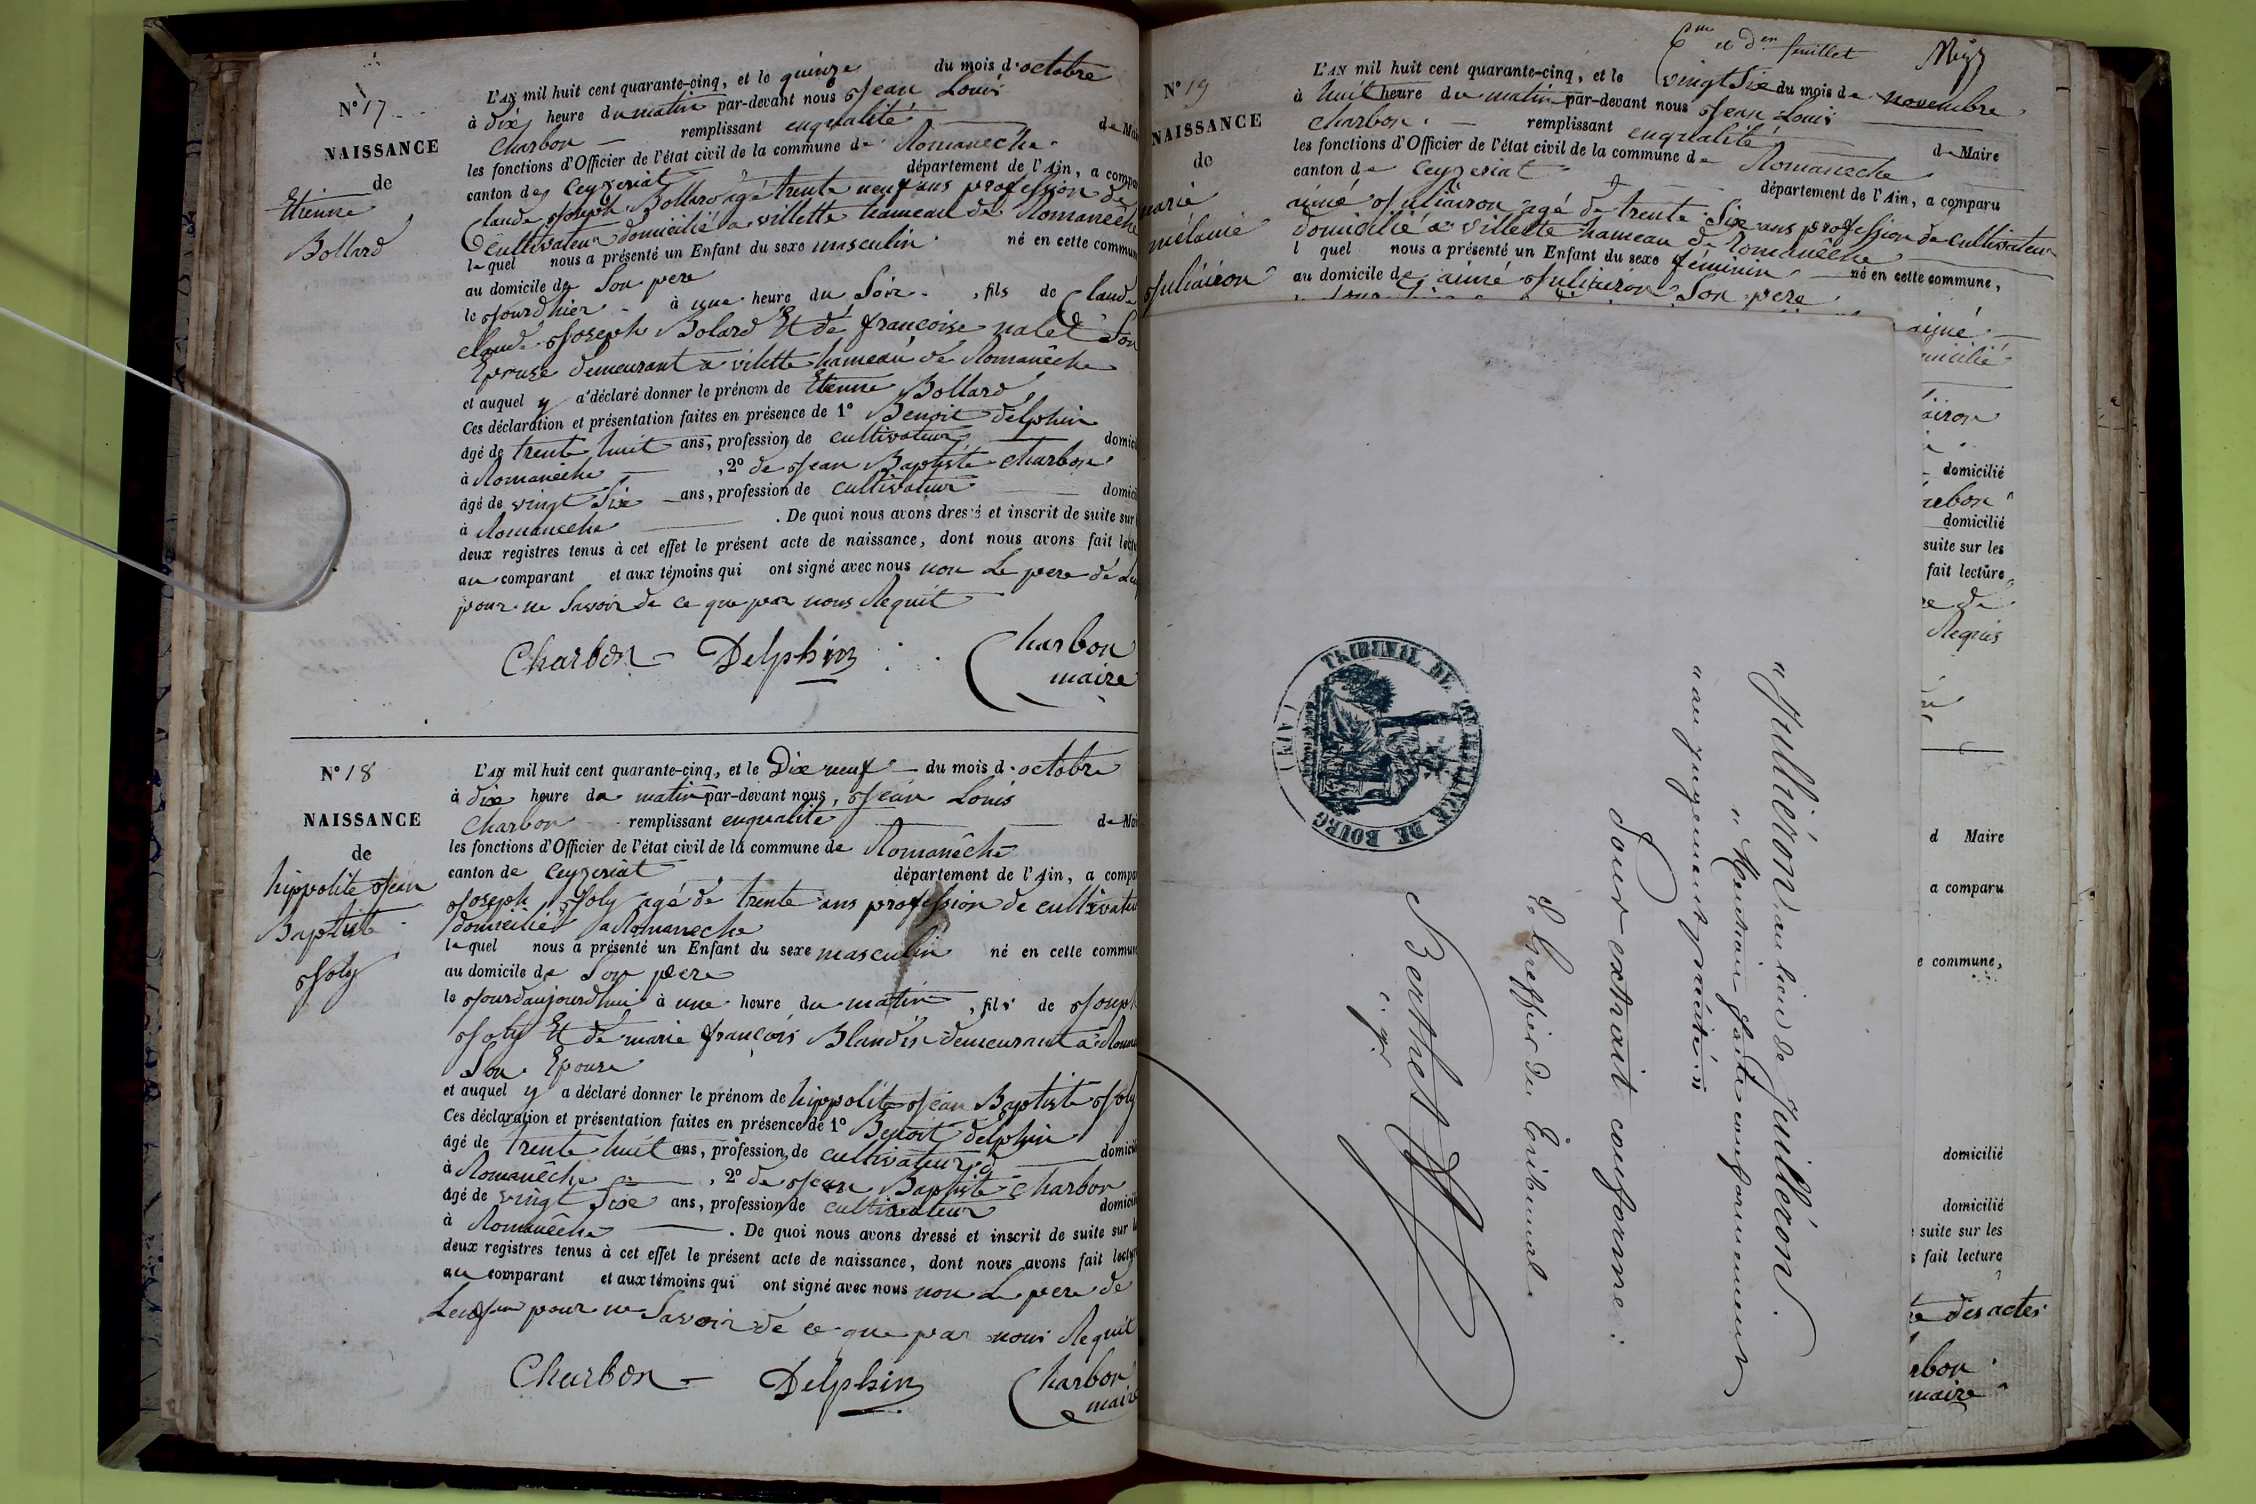 N° 17
NAISSANCE
de
Etienne
Bollard
L'AN mil huit cent quarante-cinq, et le quinze du mois d'octobre
à dix heure du matin par-devant nous Jean Louis
Charbon remplissant enqualité de Mai
les fonctions d'Officier de l'état civil de la commune de Romanêche
canton de Ceyzeriat département de l'Ain, a compa
Claude Joseph Bollard agé trente neuf ans profession de
Cultivateur domicilié a villette hameau de Romanêche
lequel nous a présenté un Enfant du sexe masculin né en cette commun
au domicile de Son pere
le Jourdhier à une heure du Soir, fils de Claude
Claude Joseph Bolard Et de françoise nalet Son
Epouse demeurant a vilette hameau de Romanêche
et auquel y a déclaré donner le prénom de Etienne Bollard
Ces déclaration et présentation faites en présence de 1° Benoit delphin
âgé de trente huit ans, profession de cultivateur domici
à Romanêche, 2° de Jean Baptiste Charbon
âgé de vingt Six ans, profession de cultivateur domici
à Romanêche. De quoi nous avons dressé et inscrit de suite sur
deux registres tenus à cet effet le présent acte de naissance, dont nous avons fait lectu
au comparant et aux témoins qui ont signé avec nous non Le pere de
pour ne Savoir de ce que par nous Requit
Charbon Delphin Charbon
maire
N° 18
NAISSANCE
de
hippolite Jean
Baptiste
Joly
L'AN mil huit cent quarante-cinq, et le Dix neuf du mois d'octobre
à dix heure du matin par-devant nous, Jean Louis
Charbon remplissant enqualité de Mai
les fonctions d'Officier de l'état civil de la commune de Romanêche
canton de Ceyzeriat département de l'Ain, a compa
Joseph Joly agé de trente ans profession de cultivateu
domicilié a Romaneche
lequel nous a présenté un Enfant du sexe masculin né en cette commun
au domicile de Son pere
le Jourdaujourdhui à une heure du matin, fils de Joseph
Joly Et de marie françois Blandin demeurant a Roma
Son Epouse
et auquel y a déclaré donner le prénom de hippolite Jean Baptiste Joly
Ces déclaration et présentation faites en présence de 1° Benoit delphin
âgé de trente huit ans, profession de cultivateur domicili
à Romanêche, 2° de Jean Baptiste Charbon
âgé de vingt Six ans, profession de cultivateur domicili
à Romanêche. De quoi nous avons dressé et inscrit de suite sur l
deux registres tenus à cet effet le présent acte de naissance, dont nous avons fait lectur
au comparant et aux témoins qui ont signé avec nous non Le pere de
Lenfan pour ne Savoir de ce que par nous Requit
Charbon Delphin Charbon
maire
feuillet
N° 19
NAISSANCE
de
marie
mélanie
Juliairon
L'AN mil huit cent quarante-cinq, et le vingt Six du mois de novembre
à huit heure du matin par-devant nous Jean Louis
Charbon remplissant enqualité de Maire
les fonctions d'Officier de l'état civil de la commune de Romaneche
canton de Ceyzeriat département de l'Ain, a comparu
aimé Juliairon agé de trente Six ans profession de cultivateur
domicilié a villette hameau de Romanêche
l quel nous a présenté un Enfant du sexe féminin né en cette commune,
au domicile de aimé Juliairon Son pere
domicilié
domicilié
suite sur les
fait lecture
Requis
d Maire
a comparu
e commune,
domicilié
domicilié
suite sur les
s fait lecture
des actes
rbon
maire
"Jullieron" au lieu de Juilleron.
" Mention faite conformement
" au jugement précité "
Pour extrait conforme :
Le Greffier du Tribunal
Berthet
c. g.
TRIBUNAL DE 1ERE INSTANCE DE BOURG (AIN)